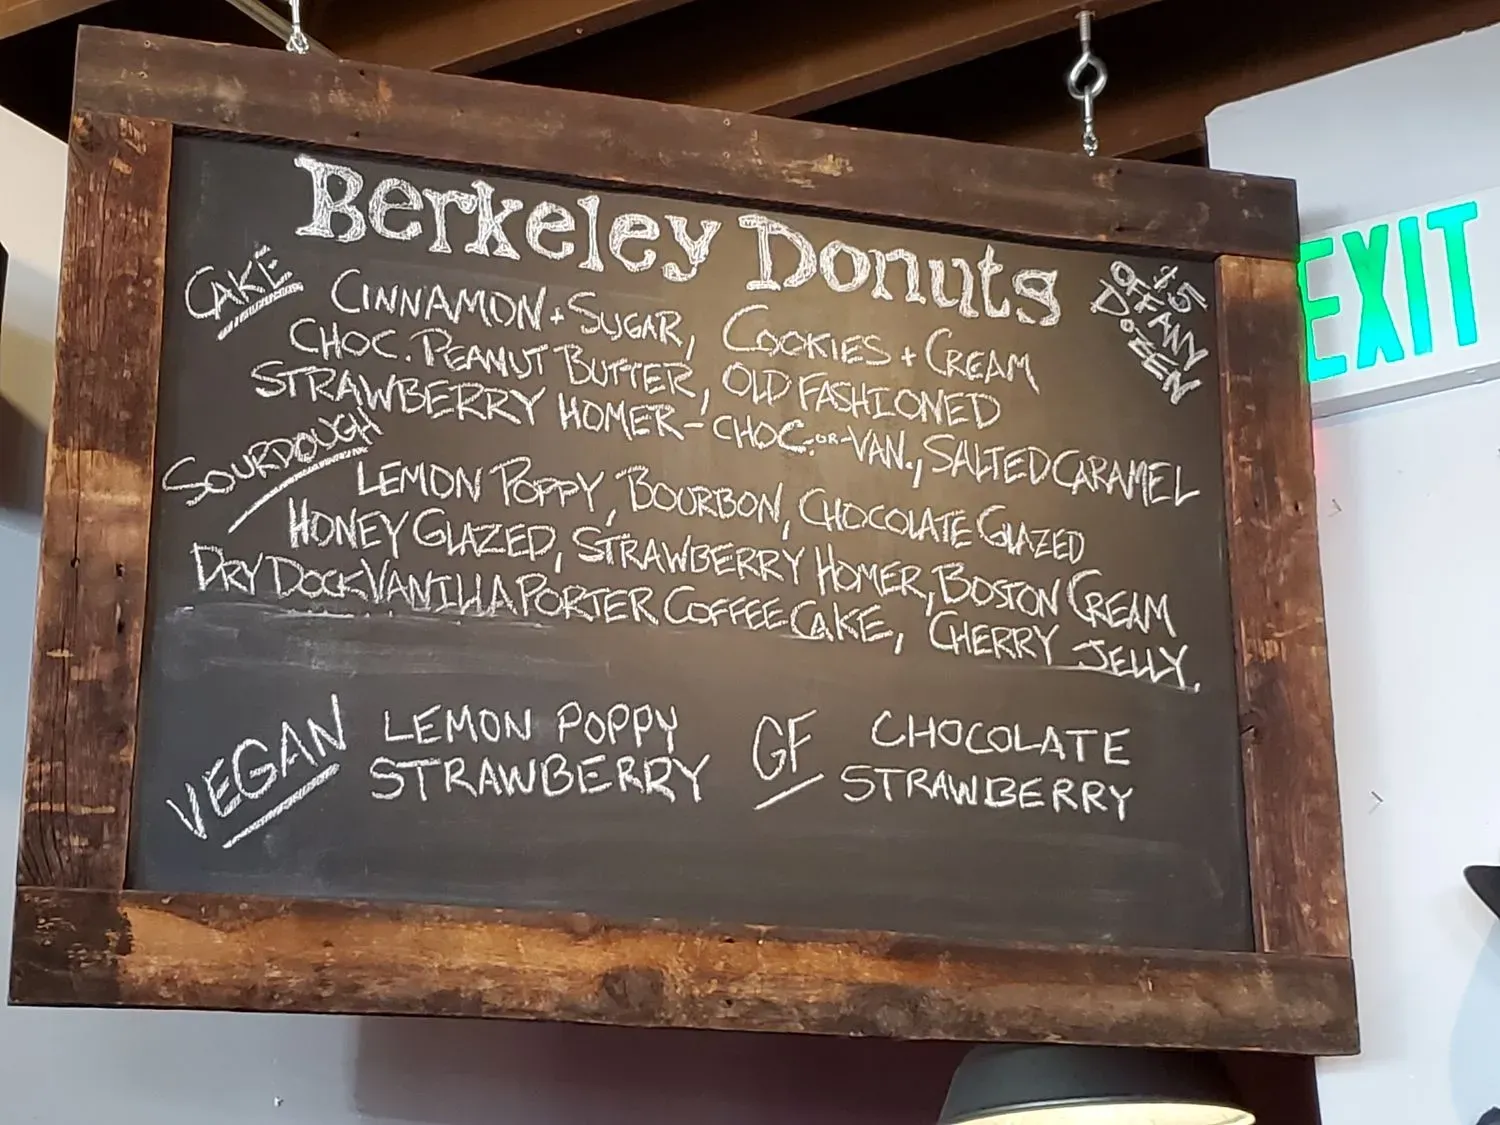 Berkeley Donuts
$5
OFF ANY
DOZEN
CAKE
CINNAMON + SUGAR, COOKIES + CREAM
CHOC. PEANUT BUTTER, OLD FASHIONED
STRAWBERRY HOMER - CHOC.-OR-VAN., SALTED CARAMEL
SOURDOUGH
LEMON POPPY, BOURBON, CHOCOLATE GLAZED
HONEY GLAZED, STRAWBERRY HOMER, BOSTON CREAM
DRY DOCK VANILLA PORTER COFFEE CAKE, CHERRY JELLY.
VEGAN
LEMON POPPY
STRAWBERRY
GF
CHOCOLATE
STRAWBERRY
EXIT